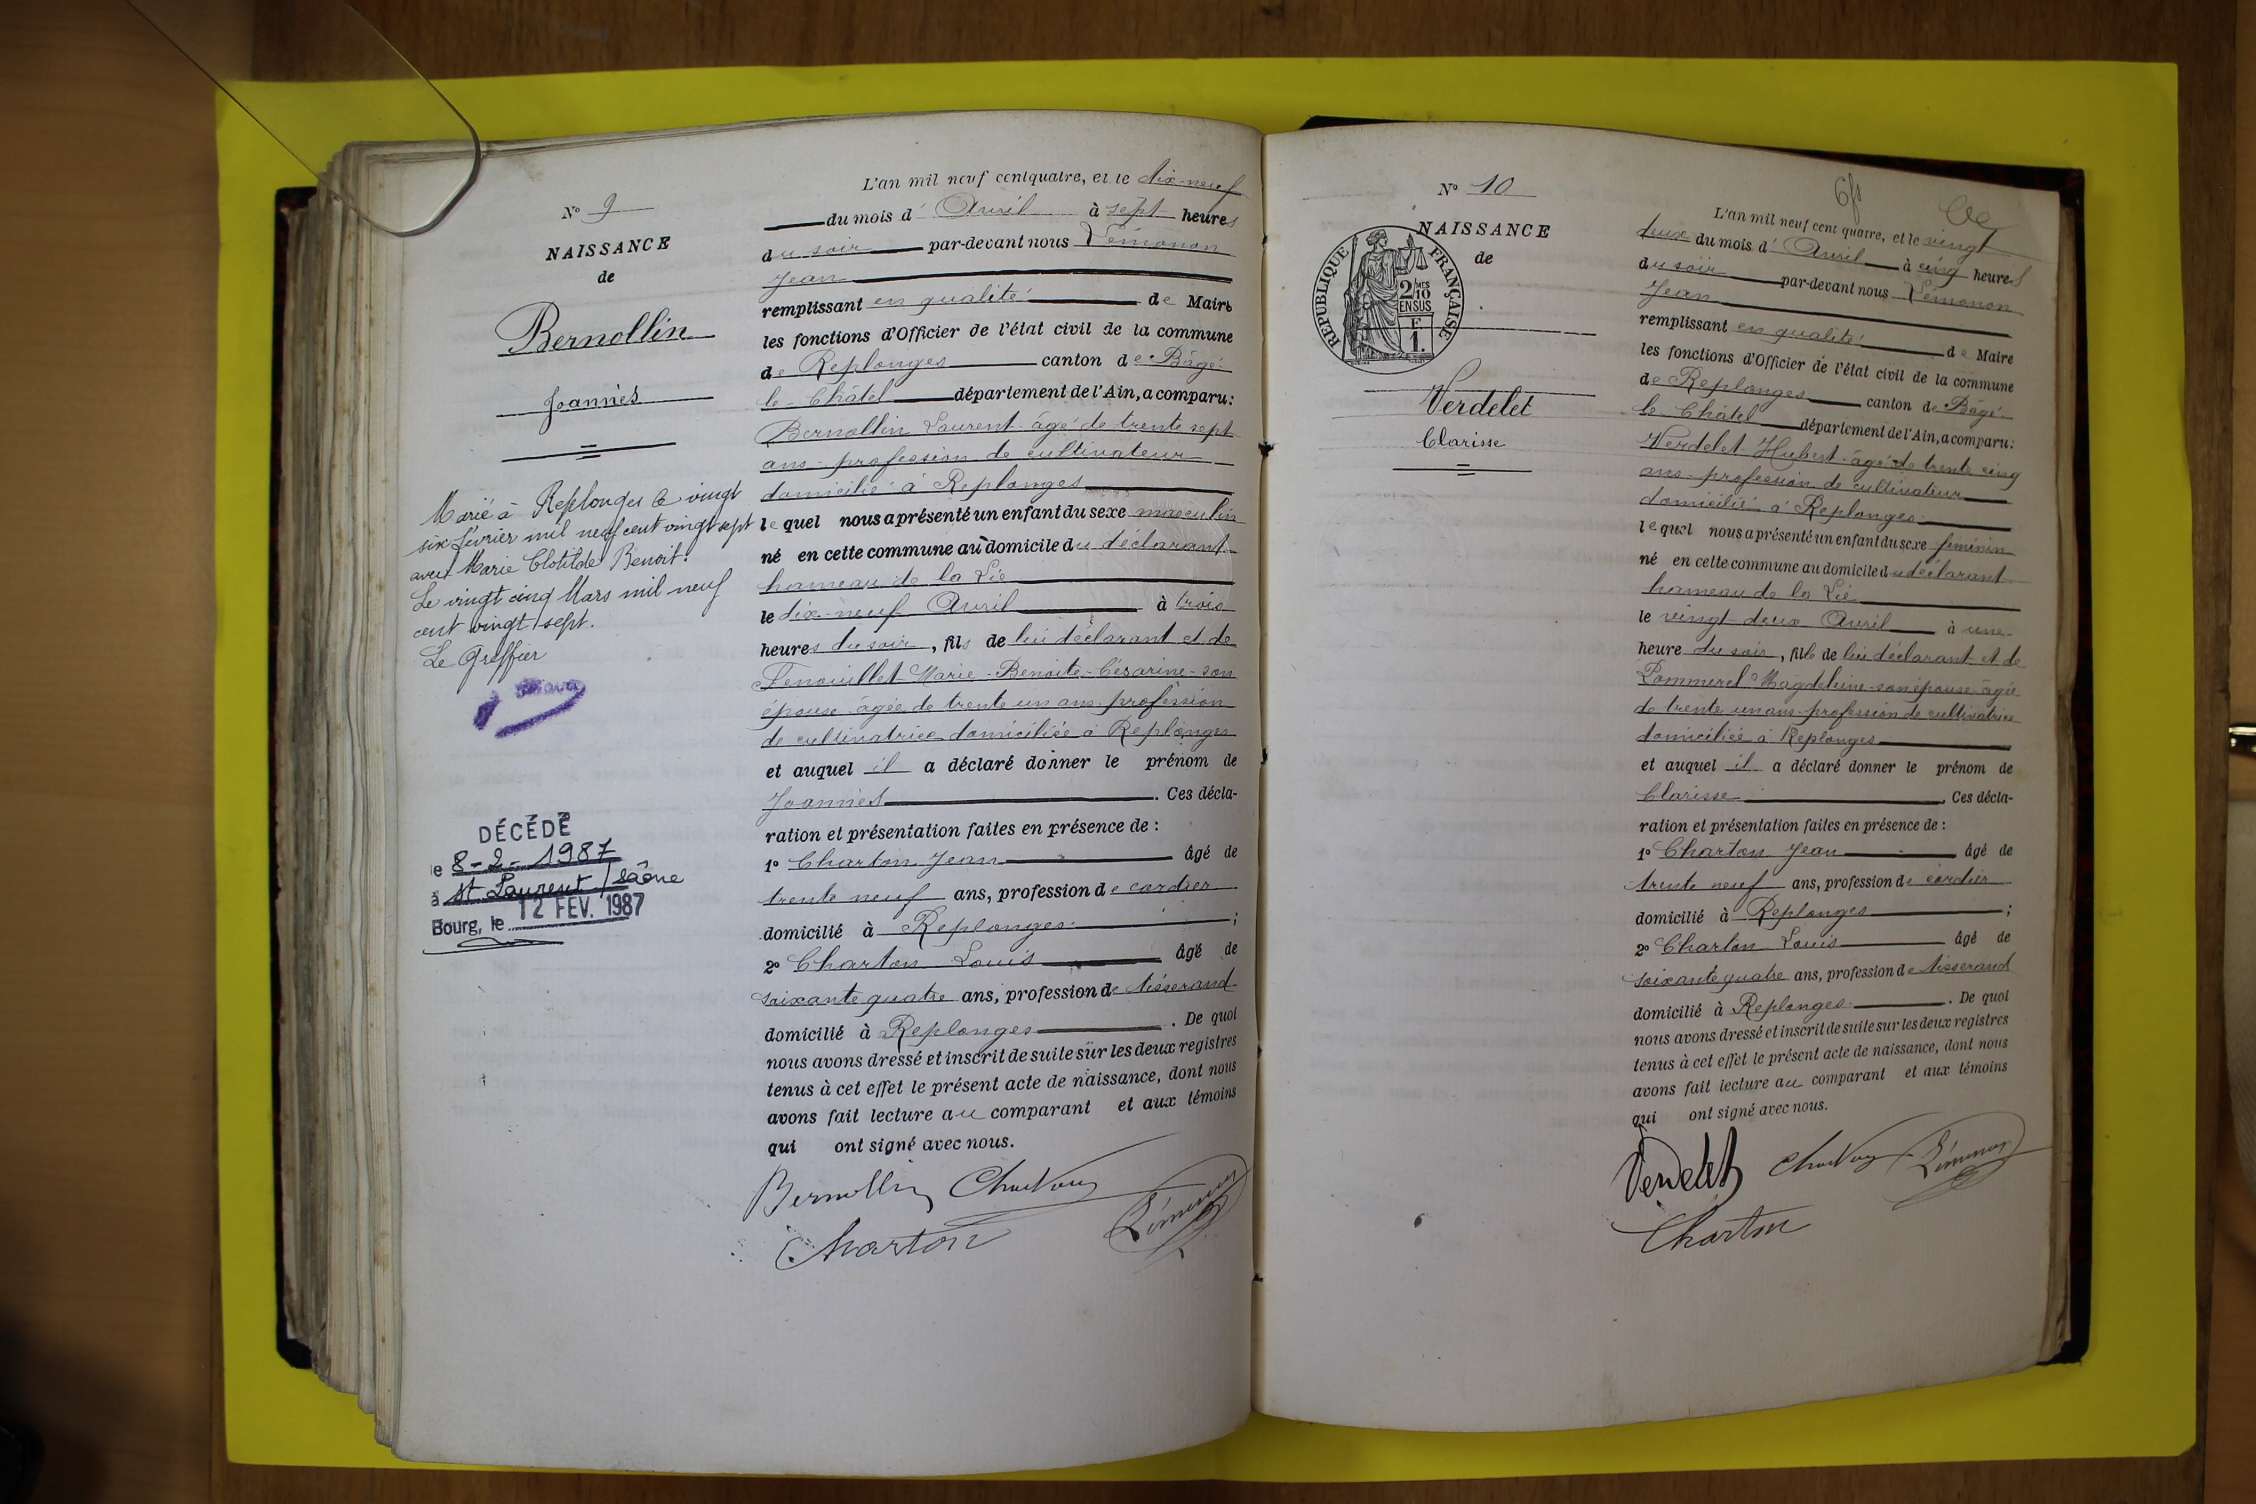 L'an mil neuf cent quatre, et le dix-neuf
N° 9
du mois d' Avril à sept heures
NAISSANCE
du soir par-devant nous Lémonon
de
Jean
remplissant en qualité de Maire
Bernollin
les fonctions d'Officier de l'état civil de la commune
de Replonges canton de Bâgé
Joannès
le Châtel département de l'Ain, a comparu:
Bernollin Laurent âgé de trente sept
ans profession de cultivateur
domicilié à Replonges
lequel nous a présenté un enfant du sexe masculin
né en cette commune au domicile du déclarant
hameau de la Lié
le dix-neuf Avril à trois
heures du soir, fils de lui déclarant et de
Fenouillet Marie-Benoite-Césarine-son
épouse âgée de trente un ans profession
de cultivatrice domiciliée à Replonges
et auquel il a déclaré donner le prénom de
Joannès. Ces décla-
ration et présentation faites en présence de :
1° Charton Jean âgé de
trente neuf ans, profession de cordier
domicilié à Replonges ;
2° Charton Louis âgé de
soixante quatre ans, profession de tisserand
domicilié à Replonges. De quoi
nous avons dressé et inscrit de suite sur les deux registres
tenus à cet effet le présent acte de naissance, dont nous
avons fait lecture au comparant et aux témoins
qui ont signé avec nous.
Bernollin Charton
Charton Lémonon
Marié à Replonges le vingt
six février mil neuf cent vingt sept
avec Marie Clotilde Benoit.
Le vingt cinq Mars mil neuf
cent vingt sept.
Le Greffier
DÉCÉDÉ
le 8-2-1987
à St Laurent/Saône
Bourg, le 12 FEV. 1987
6f
N° 10
L'an mil neuf cent quatre, et le vingt
NAISSANCE
deux du mois d' Avril à cinq heures
de
du soir par-devant nous Lémonon
Jean
RÉPUBLIQUE FRANÇAISE
2/10 MES
EN SUS
F
1.
remplissant en qualité de Maire
les fonctions d'Officier de l'état civil de la commune
Verdelet
de Replonges canton de Bâgé
Clarisse
le Châtel département de l'Ain, a comparu:
Verdelet Hubert âgé de trente cinq
ans profession de cultivateur
domicilié à Replonges
lequel nous a présenté un enfant du sexe féminin
né en cette commune au domicile du déclarant
hameau de la Lié
le vingt deux Avril à une
heure du soir, fille de lui déclarant et de
Pommerel Magdeleine son épouse âgée
de trente un ans profession de cultivatrice
domiciliée à Replonges
et auquel il a déclaré donner le prénom de
Clarisse. Ces décla-
ration et présentation faites en présence de :
1° Charton Jean âgé de
trente neuf ans, profession de cordier
domicilié à Replonges ;
2° Charton Louis âgé de
soixante quatre ans, profession de tisserand
domicilié à Replonges. De quoi
nous avons dressé et inscrit de suite sur les deux registres
tenus à cet effet le présent acte de naissance, dont nous
avons fait lecture au comparant et aux témoins
qui ont signé avec nous.
Verdelet Charton Lémonon
Charton